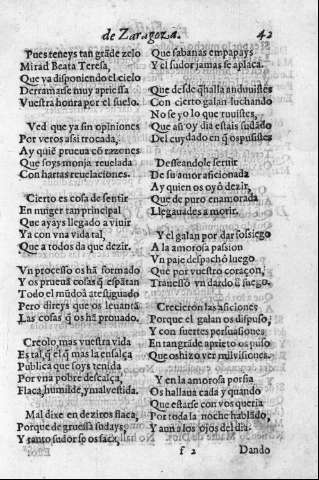 de Zaragoza.
42
Pues teneys tan grãde zelo
Mirad Beata Teresa,
Que va disponiendo el cielo
Derramarse muy apriessa
Vuestra honra por el suelo.
Ved que ya sin opiniones
Por veros assi trocada,
Ay quiẽ prueua cõ razones
Que soys monja reuelada
Con hartas reuelaciones.
Cierto es cosa de sentir
En muger tan principal
Que ayays llegado a viuir
Ya con vna vida tal,
Que a todos da que dezir.
Vn processo os hã formado
Y os prueuã cosas q̃ espãtan
Todo el mũdo à testiguado
Pero direys que os leuantã
Las cosas q̃ os hã prouado.
Creolo, mas vuestra vida
Es tal, q̃ el q̃ mas la ensalça
Publica que soys tenida
Por vna pobre descalça,
Flaca, humilde, y mal vestida.
Mal dixe en deziros flaca,
Porque de gruessa sudays,
Y tanto sudor se os saca,
Que sabanas empapays
Y el sudor jamas se aplaca.
Que desde q̃ halla anduuistes
Con cierto galan luchando
No se yo lo que tuuistes,
Que aũ oy dia estais sudãdo
Del cuydado en q̃ os pusistes
Desseandole seruir
De su amor aficionada
Ay quien os oyò dezir,
Que de puro enamorada
Llegauades a morir.
Y el galan por dar sossiego
A la amorosa passion
Vn paje despachò luego
Que por vuestro coraçon,
Trauessò vn dardo
Crecieron las aficiones
Porque el galan os dispuso,
Y con fuertes persuasiones
En tan grãde aprieto os puso
Que os hizo ver mil visiones.
Y en la amorosa porfia
Os hallaua cada y quando
Que estarse con vos queria
Por toda la noche hablãdo,
Y aun a los ojos del dia.
f 2
Dando